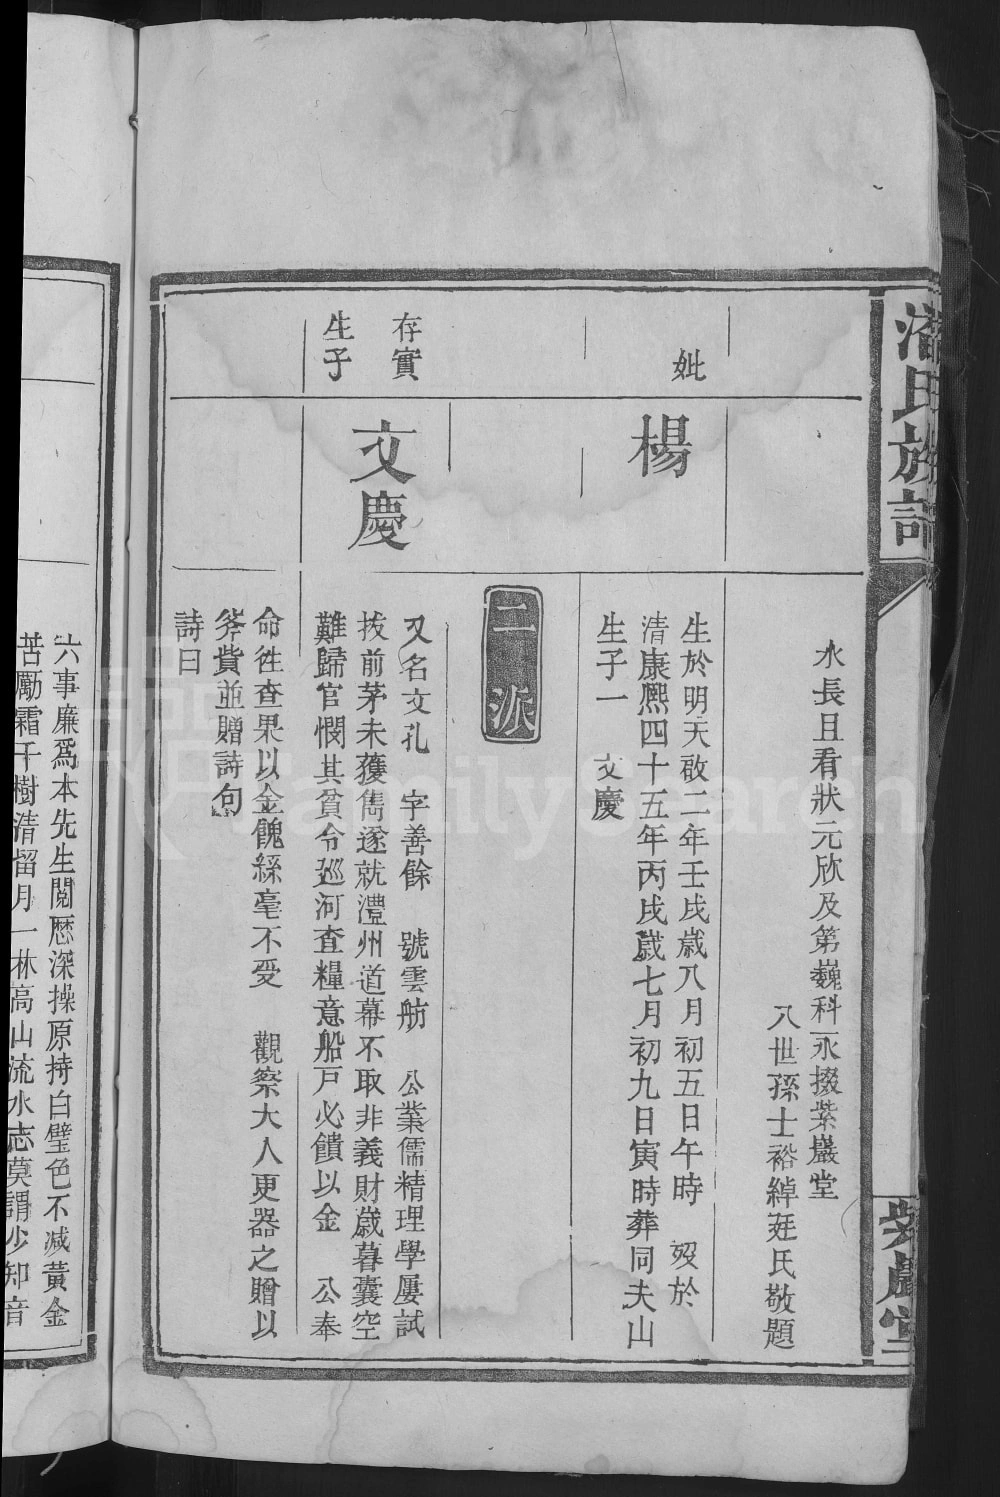 潘氏族譜
紫巖堂
水長且看狀元欣及第巍科永掇紫巖堂
八世孫士裕綽廷氏敬題
妣
楊
生於明天啟二年壬戌歲八月初五日午時 歿於
清康熙四十五年丙戌歲七月初九日寅時葬同夫山
生子一 文慶
二派
存實
生子
文慶
又名文孔 字善餘 號雲舫 公業儒精理學屢試
拔前茅未獲雋遂就澧州道幕不取非義財歲暮囊空
難歸官憫其貧令巡河查糧意船戶必饋以金 公奉
命徃查果以金餽絲毫不受 觀察大人更器之贈以
斧貲並贈詩句
詩曰
六事廉爲本先生閲歷深操原持白璧色不減黃金
苦勵霜千樹清留月一林高山流水志莫謂少知音
FamilySearch